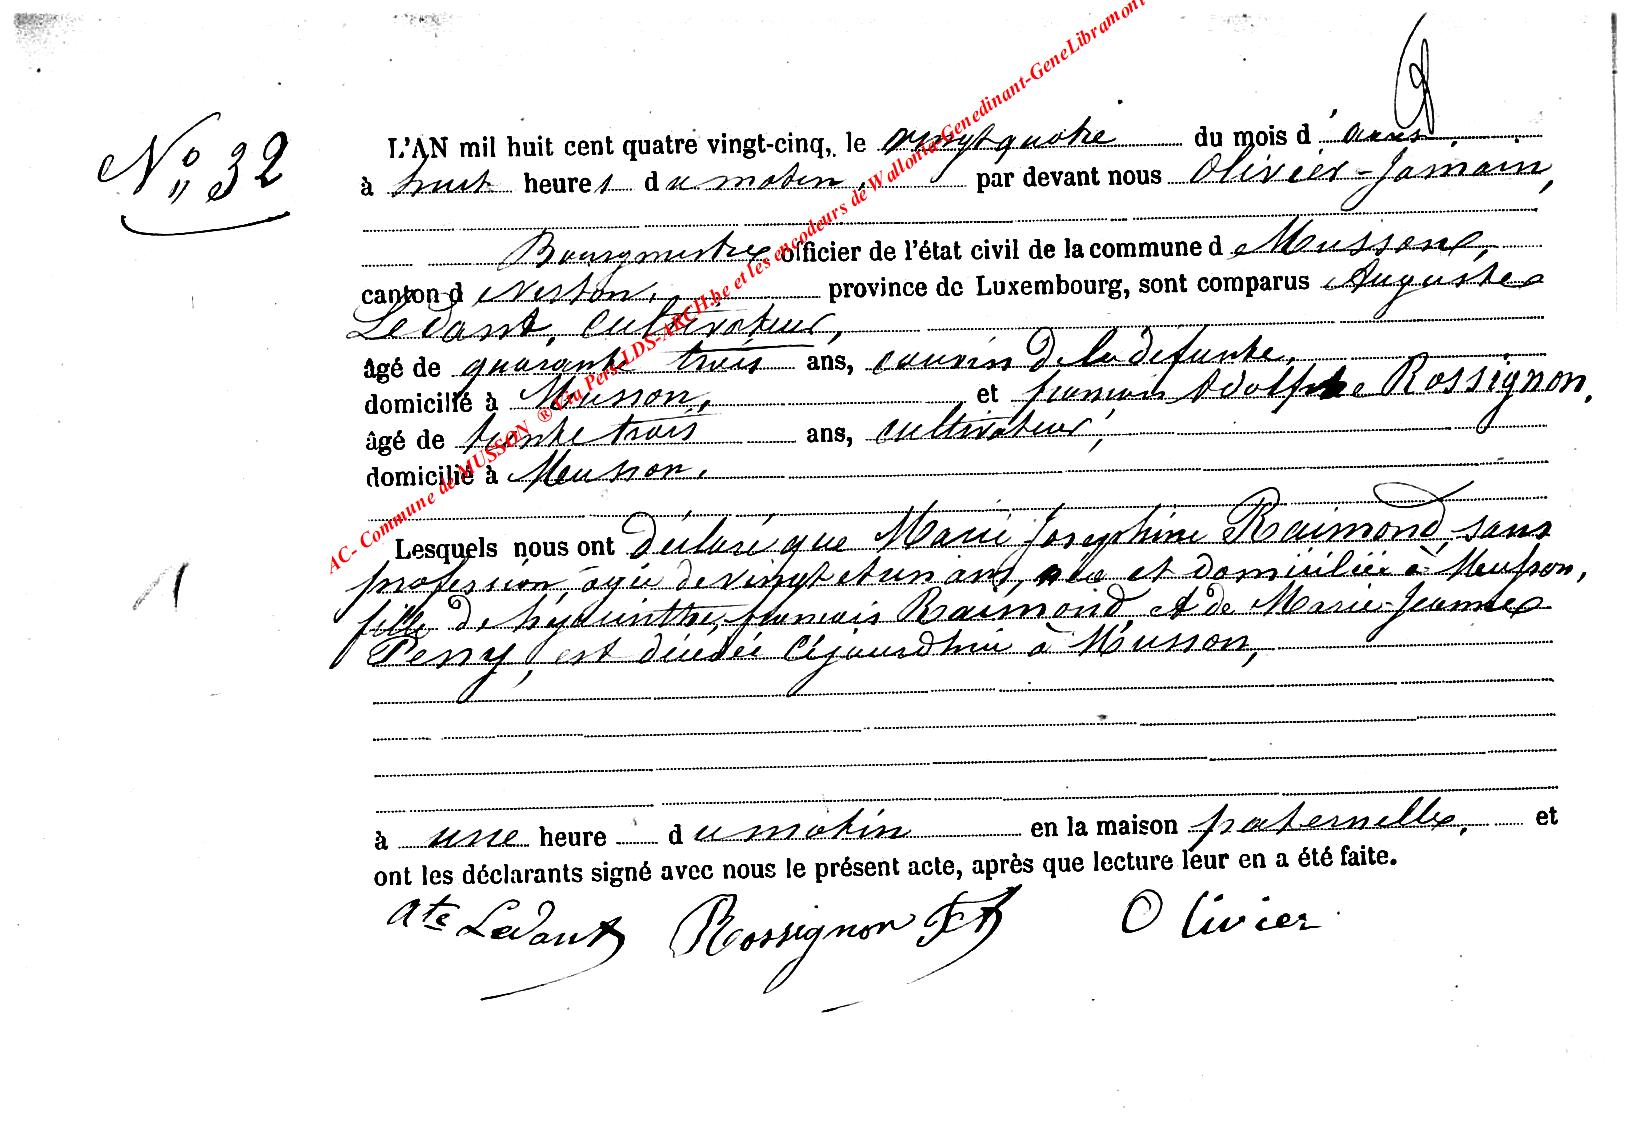 N° 32
L'AN mil huit cent quatre vingt-cinq, le vingt quatre du mois d'août,
à huit heures du matin, par devant nous Olivier-Jamain,
Bourgmestre officier de l'état civil de la commune de Musson,
canton de Virton, province de Luxembourg, sont comparus Auguste
Ledant, cultivateur,
âgé de quarante trois ans, cousin de la défunte,
domicilié à Musson, et françois Adolphe Rossignon,
âgé de trente trois ans, cultivateur,
domicilié à Musson.
Lesquels nous ont déclaré que Marie Josephine Raimond, sans
profession, agée de vingt et un ans, née et domiciliée à Musson,
fille de hyacinthe, françois Raimond, et de Marie-Jeanne
Perry, est décédée Cejourd'hui à Musson,
à une heure du matin en la maison paternelle, et
ont les déclarants signé avec nous le présent acte, après que lecture leur en a été faite.
Ate Ledant Rossignon FA Olivier
AC- Commune de MUSSON ® Via Pers-LDS-ARCH.be et les encodeurs de Wallonia-Genedinant-GeneLibramont